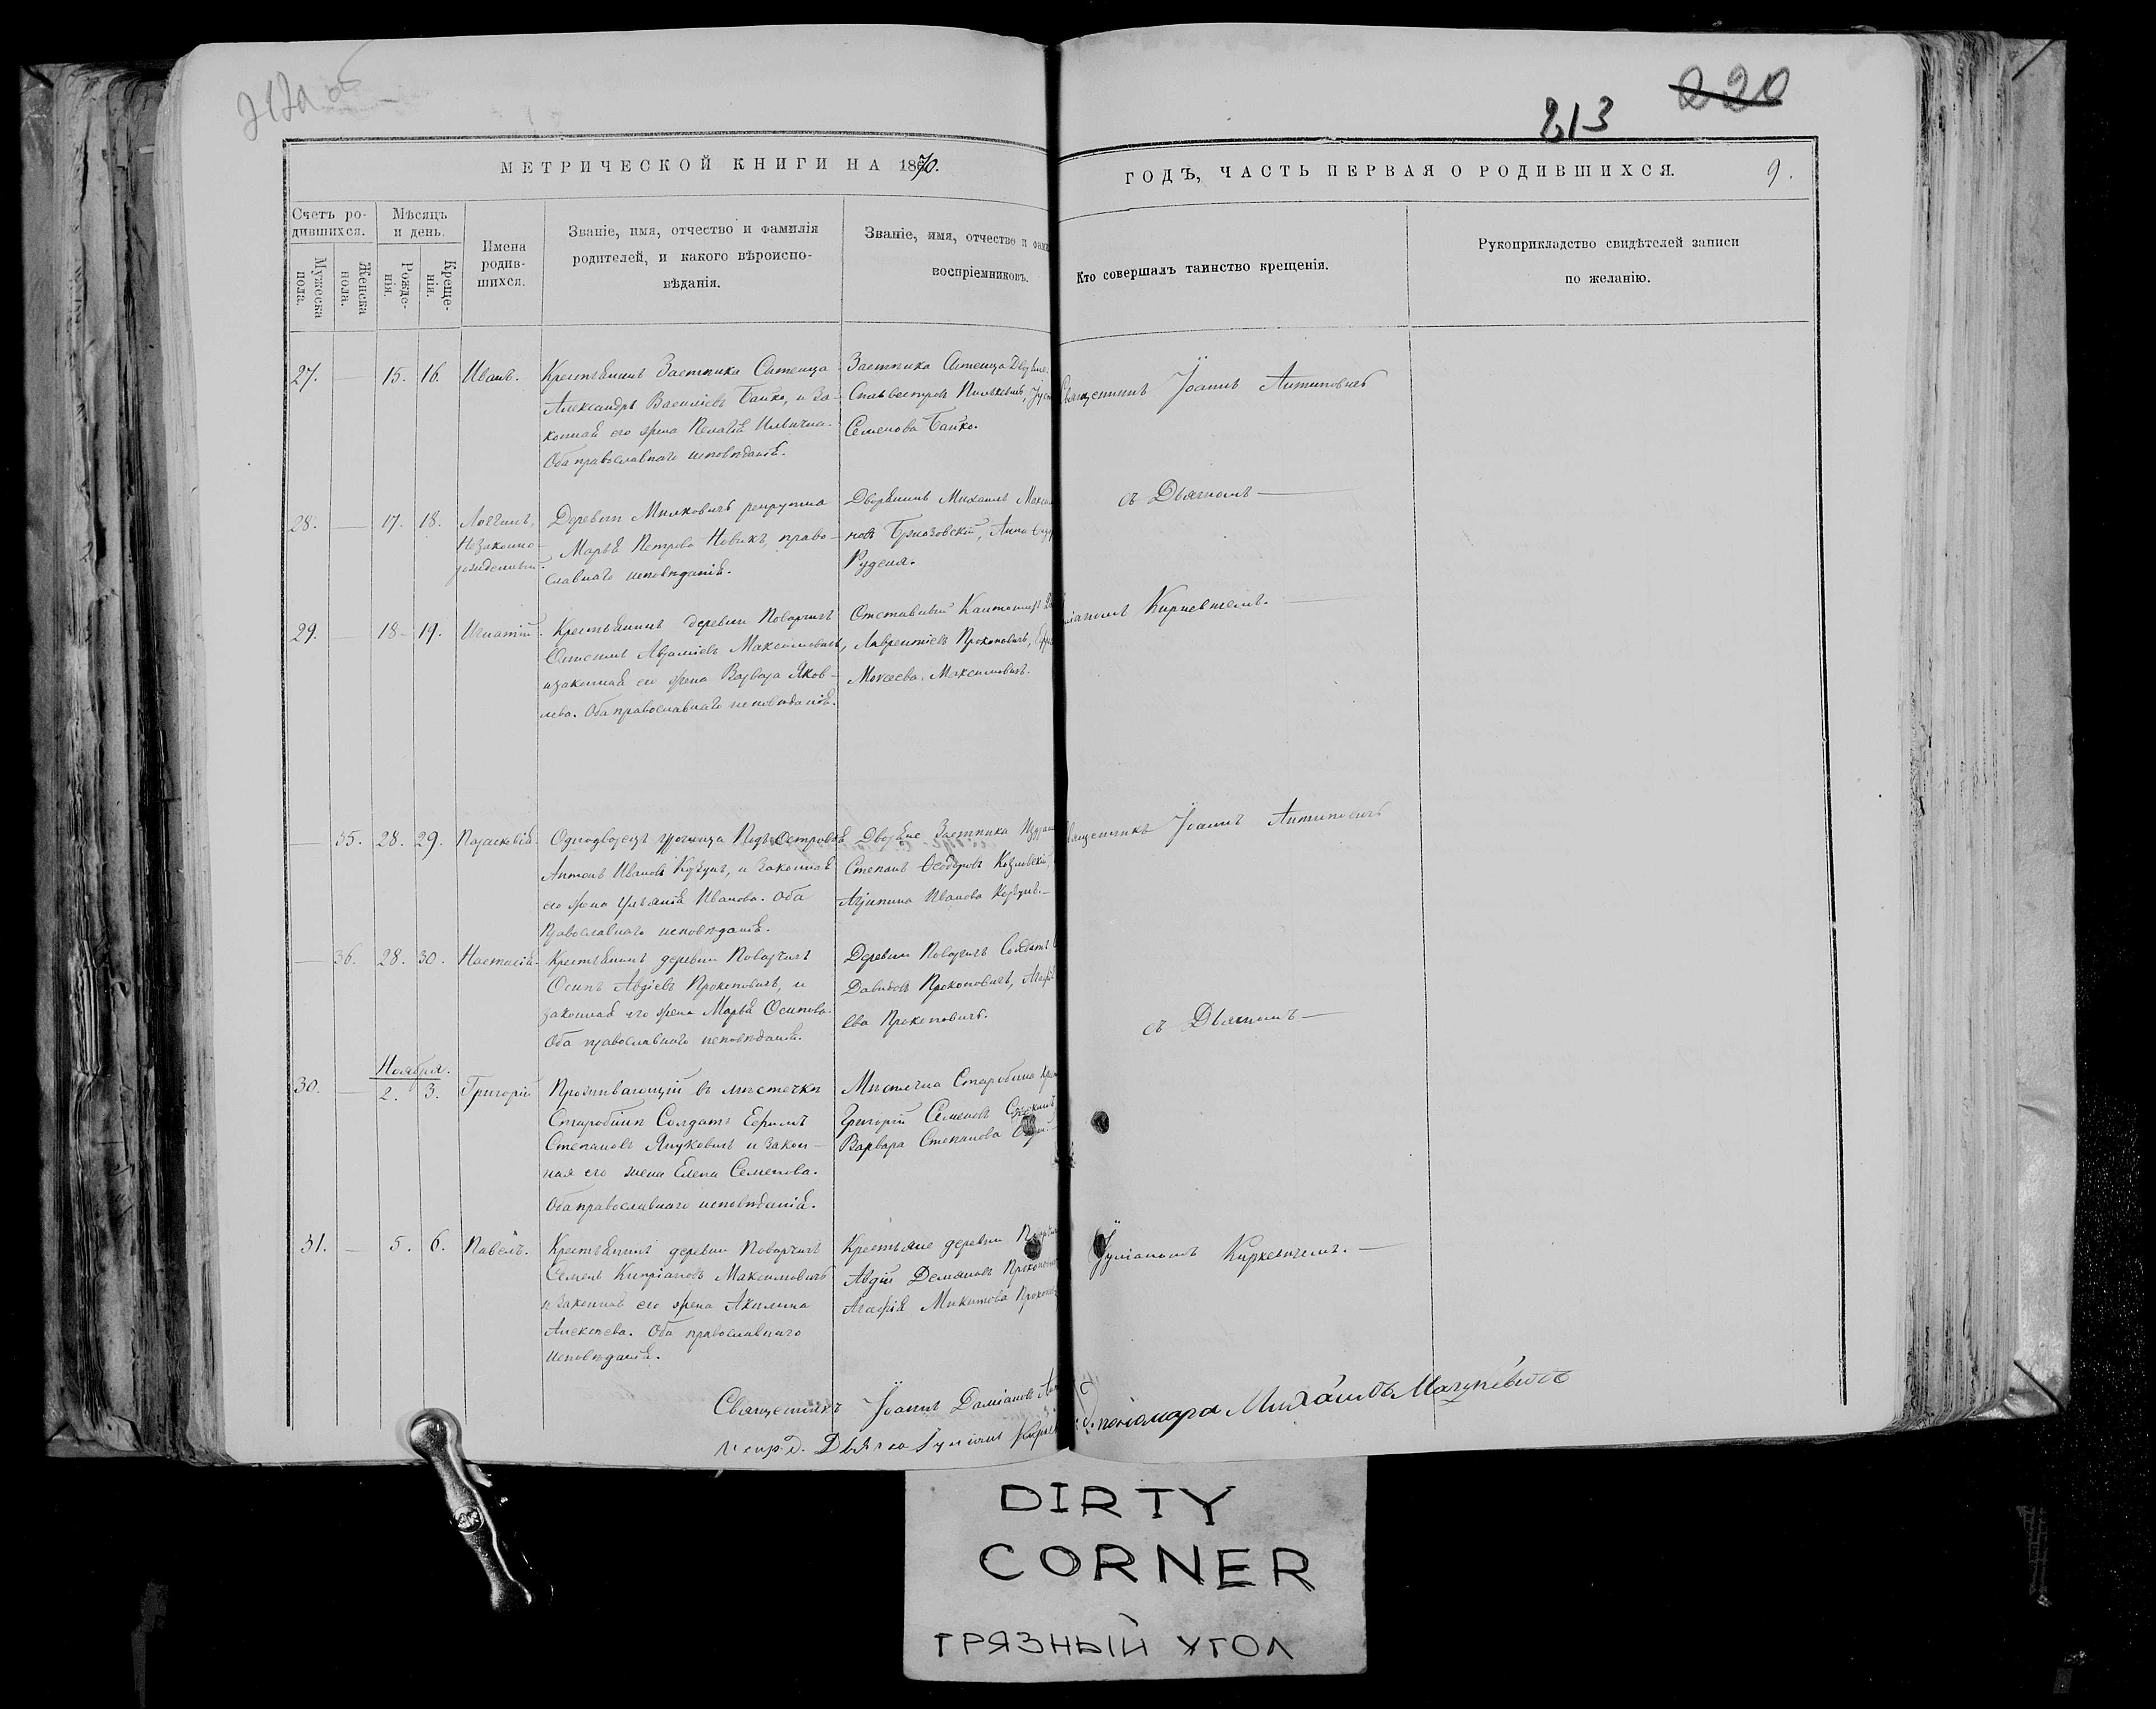 212а об
213
220
МЕТРИЧЕСКОЙ КНИГИ НА 1870.
ГОДЪ, ЧАСТЬ ПЕРВАЯ О РОДИВШИХСЯ.
9.
Счетъ ро-
дившихся.
Мужеска
пола.
Женска
пола.
Мѣсяцъ
и день.
Рожде-
нія.
Креще-
нія.
Имена
родив-
шихся.
Званіе, имя, отчество и фамилія
родителей, и какого вѣроиспо-
вѣданія.
Званіе, имя, отчество и фами
воспріемниковъ.
Кто совершалъ таинство крещенія.
Рукоприкладство свидѣтелей записи
по желанію.
27. — 15. 16. Иванъ.
Крестьянинъ Застѣнка
Александръ Васильевъ Байко, и за-
конная его жена Пелагія Ильична.
Оба православнаго исповѣданія.
Застѣнка
Семенова Байко.
Священникъ Іоаннъ Антиповичъ
28. — 17. 18. Логгинъ,
Незаконно-
рожденный.
Деревни Милковичъ рекрутка
Марья Петрова Новикъ, право-
славнаго исповѣданія.
Дворянинъ Михаилъ
новъ Анна
Руденя.
съ Дьячкомъ —
29. — 18 - 19. Игнатій.
Крестьянинъ деревни Поварчичъ
Максимовичъ,
и законная его жена Варвара Яков-
лева. Оба православнаго исповѣданія.
Отставный
Лаврентіевъ Прокоповичъ,
Моисеева Максимовичъ.
Киркевичемъ. —
— 35. 28. 29. Параскевія.
Однодворецъ урочища Подъ-Островья
Антонъ Ивановъ Коржунъ, и законная
его жена Ульянія Иванова. Оба
православнаго исповѣданія.
Дворяне Застѣнка
Степанъ Ѳеодоровъ Козловскій,
Агрипина Иванова Коржунъ. —
Священникъ Іоаннъ Антиповичъ
— 36. 28. 30. Настасія.
Крестьянинъ деревни Поварчичъ
Осипъ Авдіевъ Прокоповичъ, и
законная его жена Марья Осипова.
Оба православнаго исповѣданія.
Деревни Поварчичъ Солдатъ
Давидовъ Прокоповичъ,
ева Прокоповичъ.
съ Дьячкомъ —
Ноября.
30. — 2. 3. Григорій
Проживающій въ мѣстечкѣ
Старобинѣ Солдатъ Ефимъ
Степановъ Януковичъ и закон-
ная его жена Елена Семенова.
Оба православнаго исповѣданія.
Мѣстечка Старобина
Григорій Семеновъ
Варвара Степанова
31. — 5. 6. Павелъ.
Крестьянинъ деревни Поварчичъ
Семенъ Кипріановъ Максимовичъ
и законная его жена Акилина
Алексѣева. Оба православнаго
исповѣданія.
Крестьяне деревни
Авдій Демяновъ
Агафія Микитова
Іуліаномъ Киркевичемъ. —
Священникъ Іоаннъ Даміановъ
испр. д. Дьячка Іуліанъ
пономаря Михаилъ Мацукевичъ
DIRTY
CORNER
ГРЯЗНЫЙ УГОЛ